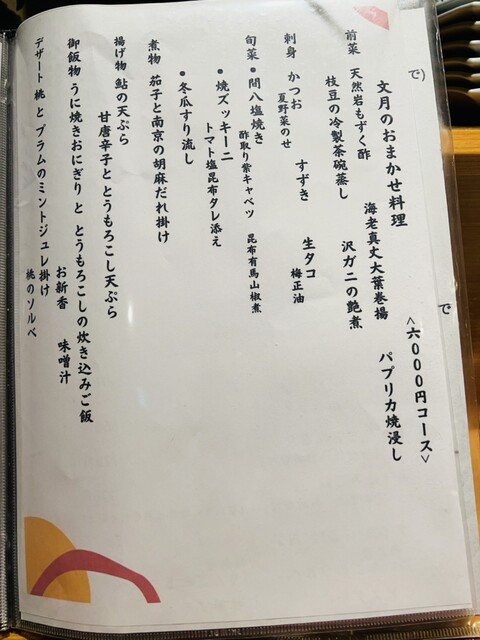 で)
で
<六000円コース>
文月のおまかせ料理
前菜 天然岩もずく酢 海老真丈大葉巻揚 パプリカ焼浸し
枝豆の冷製茶碗蒸し 沢ガニの艶煮
刺身 かつお すずき 生タコ
夏野菜のせ 梅正油
旬菜 ●間八塩焼き
酢取り紫キャベツ 昆布有馬山椒煮
●焼ズッキーニ
トマト塩昆布タレ添え
●冬瓜すり流し
煮物 茄子と南京の胡麻だれ掛け
揚げ物 鮎の天ぷら
甘唐辛子ととうもろこし天ぷら
御飯物 うに焼きおにぎり と とうもろこしの炊き込みご飯
お新香 味噌汁
デザート 桃 と プラムのミントジュレ掛け
桃のソルベ